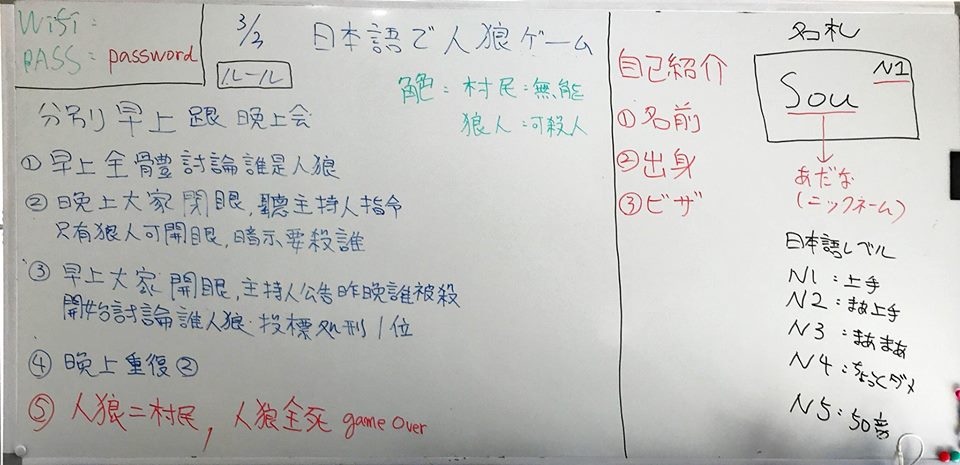 Wifi:
PASS: password
3/2
日本語で人狼ゲーム
ルール
角色: 村民:無能
狼人:可殺人
分別 早上 跟 晚上会
① 早上全體討論誰是人狼
② 晚上大家閉眼,聽主持人指令
只有狼人可開眼,暗示要殺誰
③ 早上大家開眼,主持人公告昨晚誰被殺
開始討論誰人狼.投標処刑1位
④ 晚上重復②
⑤ 人狼=村民, 人狼全死 game over
自己紹介
① 名前
② 出身
③ ビザ
名札
N1
Sou
あだな
(ニックネーム)
日本語レベル
N1:上手
N2:まあ上手
N3:まあまあ
N4:ちょっとダメ
N5:50音